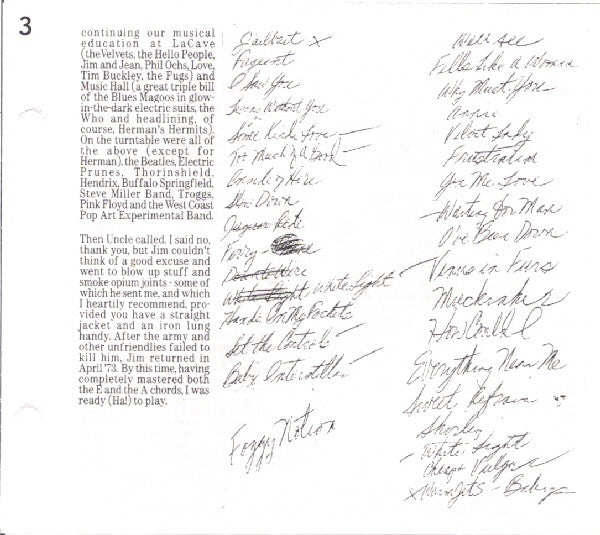 3
continuing our musical
education at LaCave
(the Velvets, the Hello People,
Jim and Jean, Phil Ochs, Love,
Tim Buckley, the Fugs) and
Music Hall (a great triple bill
of the Blues Magoos in glow-
in-the-dark electric suits, the
Who and headlining, of
course, Herman's Hermits).
On the turntable were all of
the above (except for
Herman), the Beatles, Electric
Prunes, Thorinshield,
Hendrix, Buffalo Springfield,
Steve Miller Band, Troggs,
Pink Floyd and the West Coast
Pop Art Experimental Band.
Then Uncle called. I said no,
thank you, but Jim couldn't
think of a good excuse and
went to blow up stuff and
smoke opium joints - some of
which he sent me, and which
I heartily recommend, pro-
vided you have a straight
jacket and an iron lung
handy. After the army and
other unfriendlies failed to
kill him, Jim returned in
April '73. By this time, having
completely mastered both
the E and the A chords, I was
ready (Ha!) to play.
Jailbait x
Pageant
I Saw You
Living Without You
Some Kinda Love —
Too Much of a Good —
Slow Down
Jaguar Ride
Ferry -
Down to Wire
White Light White Light
Hands On My Pockets
Set the Controls —
Baby
Foggy Notion
See
Falls Like A Woman
Why Must You
Annie
Velvet Lady
Frustration
You Me Love
— Waiting for Man
I've Been Down
— Venus in Furs
Muckraker
How Could I
Everything Near Me
Sweet Refrain
Shirley
— White Light
Cheap & Vulgar
x Warm Jets - Baby